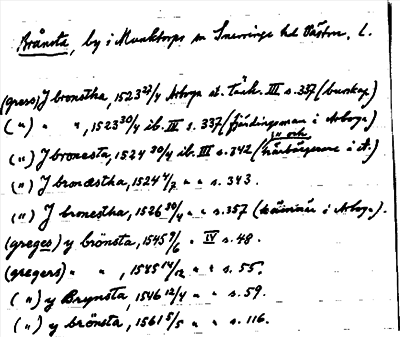 Brånsta, by i Munktorps sn Snevringe hd Västm. L.
(gress) J bronstha, 1523 22/4 Arboga st. tänk. III s. 337 (burskap)
(") " ", 1523 30/4 ib. III s. 337 (fjärdingsman i Arboga)
(") J bronesta, 1524 30/4 ib. III s. 342 (" och härbärgerare i A.)
(") J bronæstha, 1524 4/7 " " s. 343.
(") J bronestha, 1526 30/4 " " s. 357 (kämnär i Arboga).
(greges) y brönsta, 1545 9/6 " IV s. 48.
(gregers) " ", 1545 14/12 " " s. 55.
(") y Brynsta, 1546 12/4 " " s. 59.
(") y brönsta, 1561 5/5 " " s. 116.